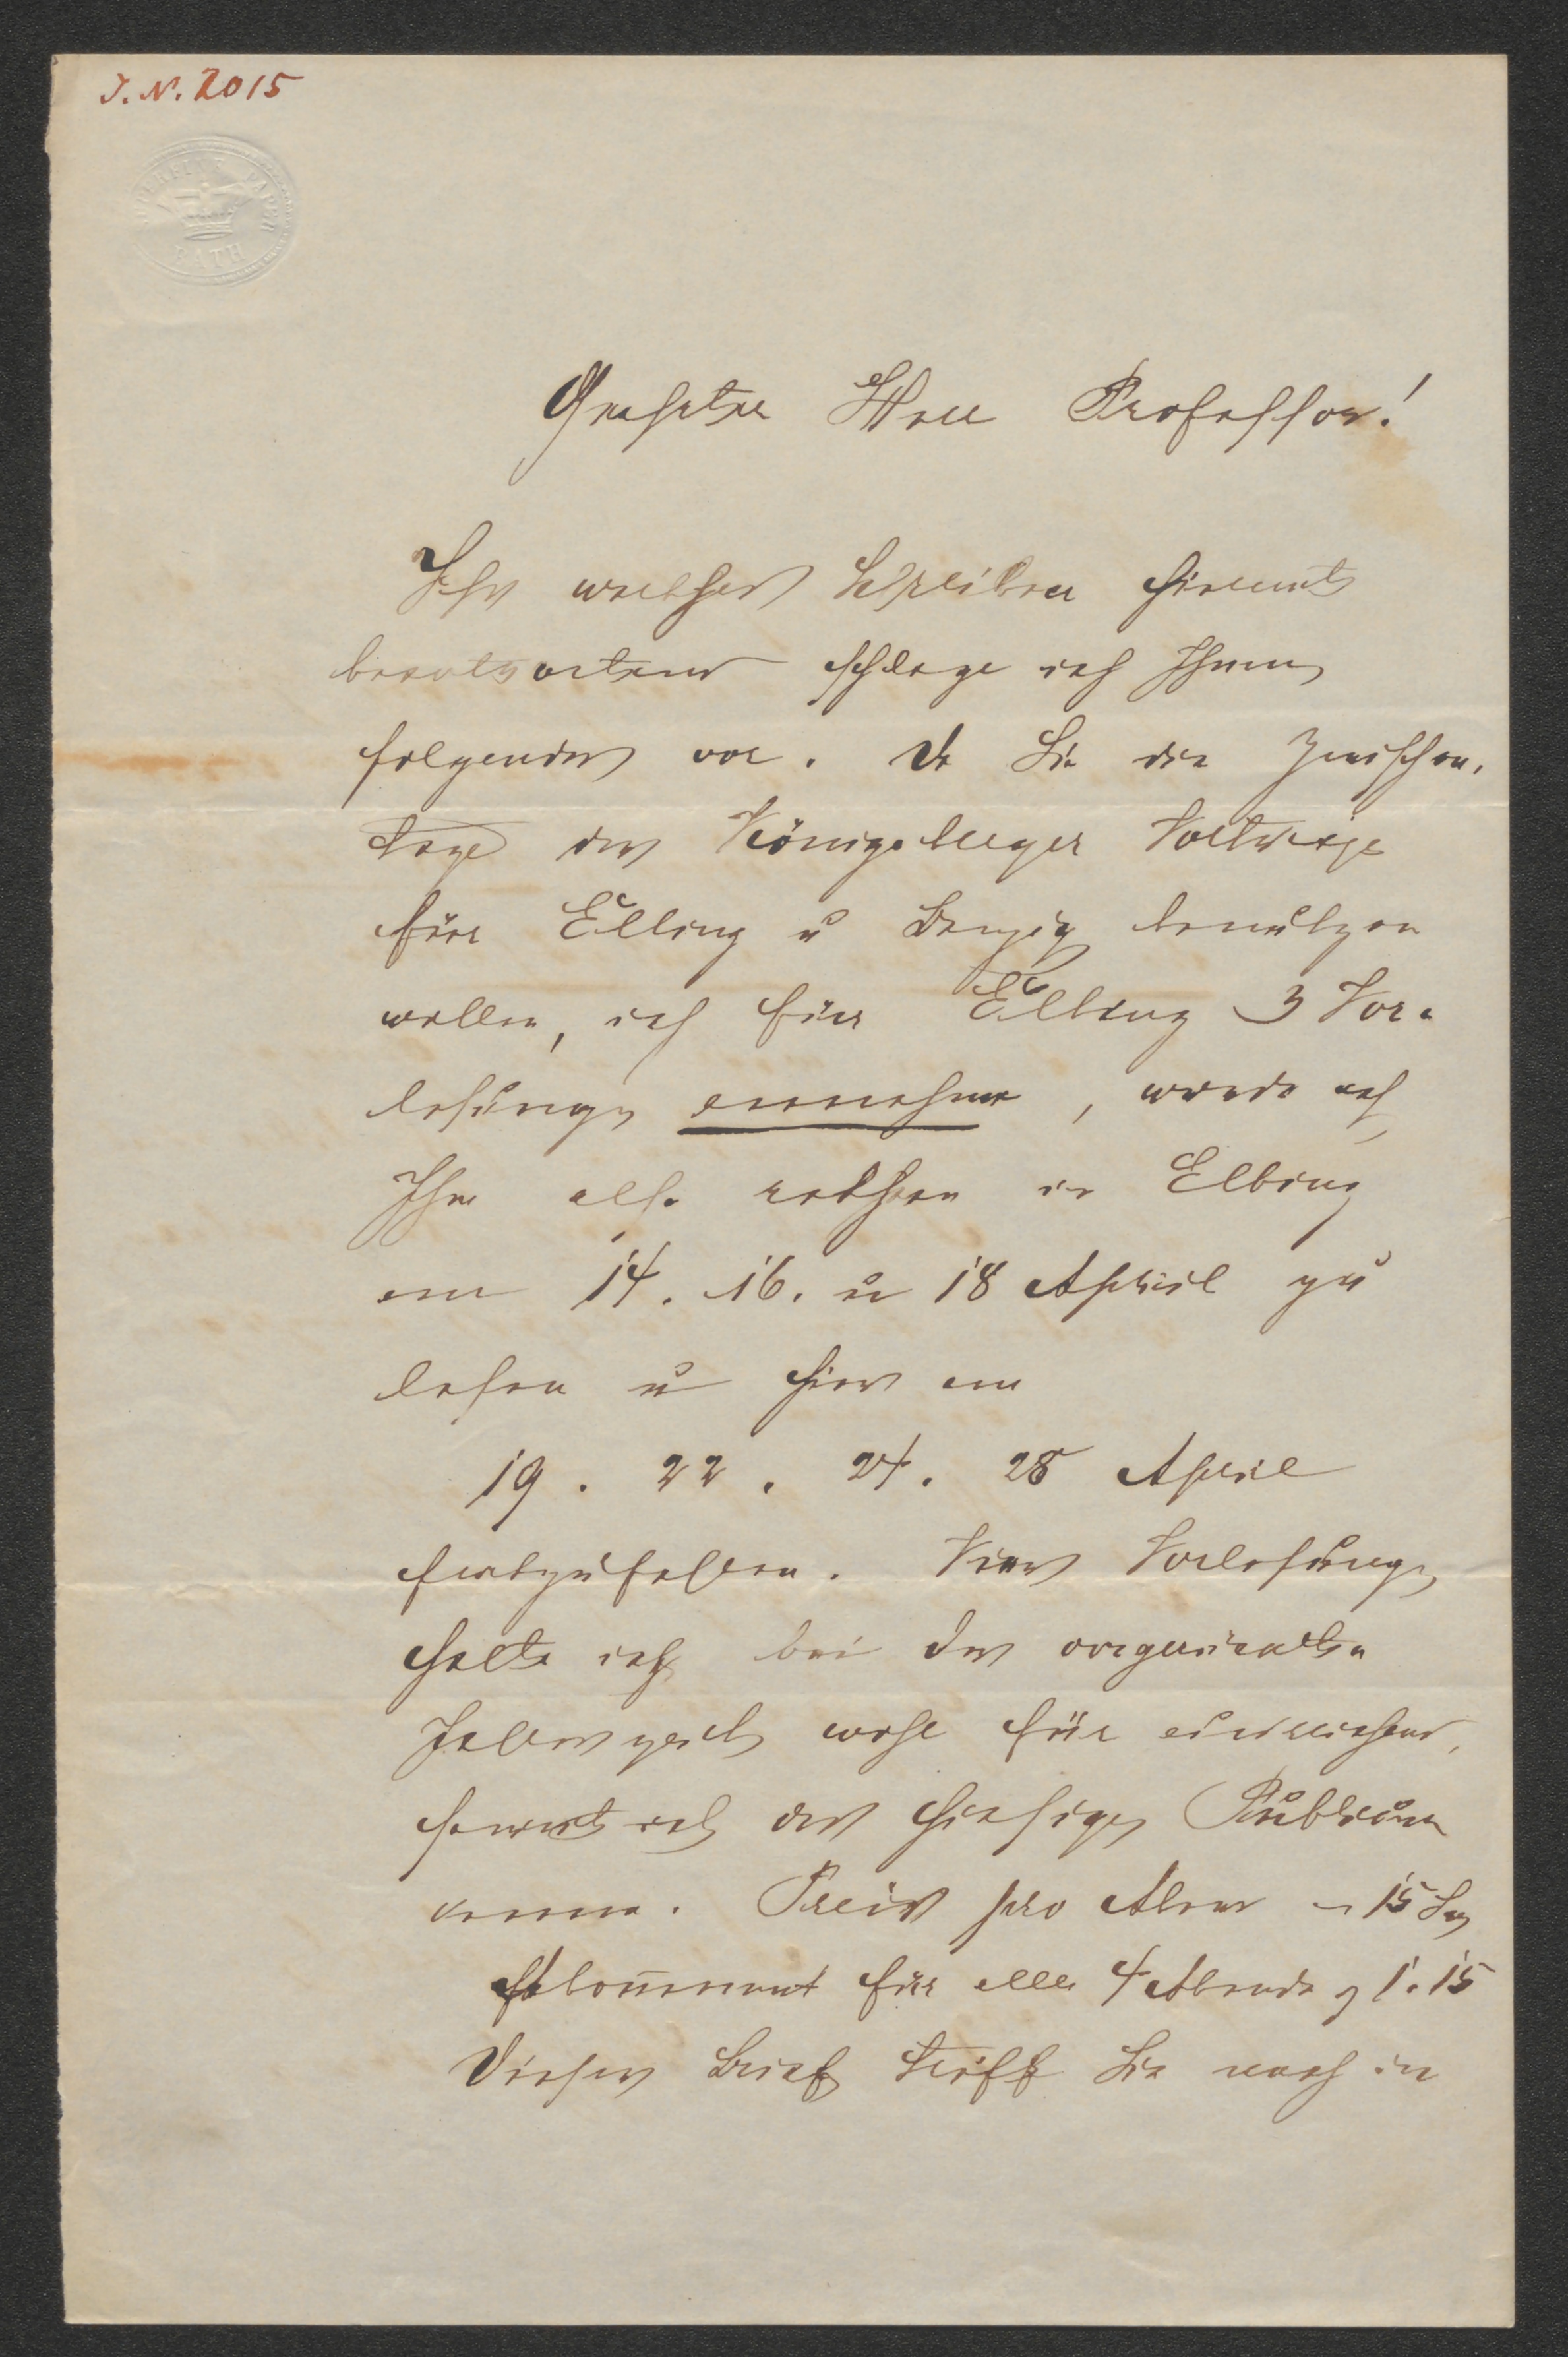 J. N. 2015
SUPERFINE PAPER
BATH
Geehrter Herr Professor!
Ihr werthes Schreiben hiermit
beantwortend schlage ich Ihnen
folgendes vor. Da Sie die Zwischen-
tage der Königsberger Vorträge
für Elbing u Danzig benutzen
wollen, ich für Elbing 3 Vor-
lesungen annehme, würde ich
Ihnen also rathen in Elbing
am 14. 16. u 18 April zu
lesen u hier am
19. 22. 24. 28 April
festzuhalten. Vier Vorlesungen
halte ich bei der
wohl für ausreichend,
soweit ich das hiesige Publicum
kenne. Preis pro Abend 15 Sg
Abonnement für alle 4 Abende 1.15
Dieser Brief trifft Sie noch in